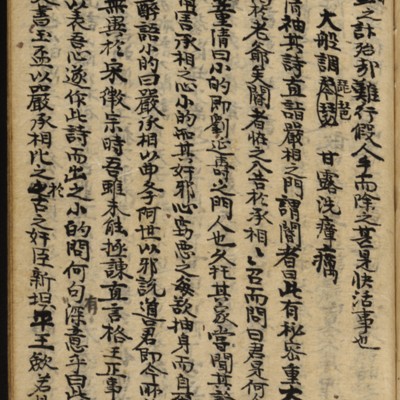 之計殆却難行假人手而除之甚是快活事也
大般調琵琶 甘露洗瘴癘
袖其詩直詣嚴相之門謂閽者曰此有秘密重大
於老爺矣閽者怪之入告於承相〃召而問曰君是何
董倩曰小的即劉延壽之門人也久在其家嘗聞其
害承相之心小的知其奸邪心爲惡之每欲抽身而自
醉語小的曰嚴承相以曲学阿世以邪說道君即今所
無異於宋徽宗時吾雖未能極諫直言格王正事
以表吾心遂作此詩而出之小的問何句有深意乎曰此
言玉盃以嚴承相比之於古之奸臣新垣平王飲若